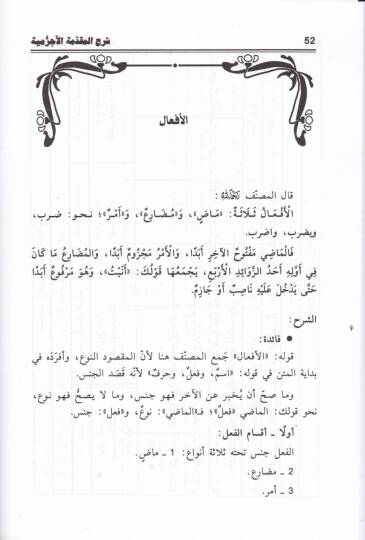 52
شرح المقدّمة الآجرّمية
الأفعال
قال المصنّف رَحِمَهُ اللَّهُ :
الْأَفْعَالُ ثَلَاثَةٌ: «مَاضٍ»، وَ«مُضَارِعٌ»، وَ«أَمْرٌ»؛ نحو: ضرب،
ويضرب، واضرب.
فَالْمَاضِي مَفْتُوحُ الآخِرِ أَبَدًا، وَالْأَمْرُ مَجْزُومٌ أَبَدًا، وَالْمُضَارِعُ مَا كَانَ
فِي أَوَّلِهِ أَحَدُ الزَّوَائِدِ الْأَرْبَعِ، يَجْمَعُهَا قَوْلُكَ: «أَنَيْتُ»، وَهُوَ مَرْفُوعٌ أَبَدًا
حَتَّى يَدْخُلَ عَلَيْهِ نَاصِبٌ أَوْ جَازِمٌ.
الشرح:
● فائدة:
قوله: «الأفعال» جَمع المصنّف هنا لأنّ المقصود النوع، وأفرَدَه في
بداية المتن في قوله: «اسمٌ، وفعلٌ، وحرفٌ» لأنّه قَصَد الجنس.
وما صحّ أن يُخبَر عن الآخر فهو جنس، وما لا يصحُّ فهو نوع،
نحو قولك: الماضي «فعلٌ»؛ فـ«الماضي»: نوعٌ، و«فعل»: جنس.
أولًا ـ أقسام الفعل:
الفعل جنس تحته ثلاثة أنواع: 1 ـ ماضٍ.
2 ـ مضارع.
3 ـ أمر.